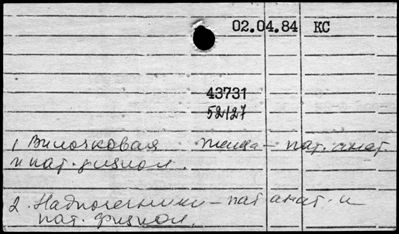 02.04.84 КС
43731
52127
1. Вилочковая железа – пат. анат.
и пат. физиол.
2. Надпочечники – пат. анат. и
пат. физиол.